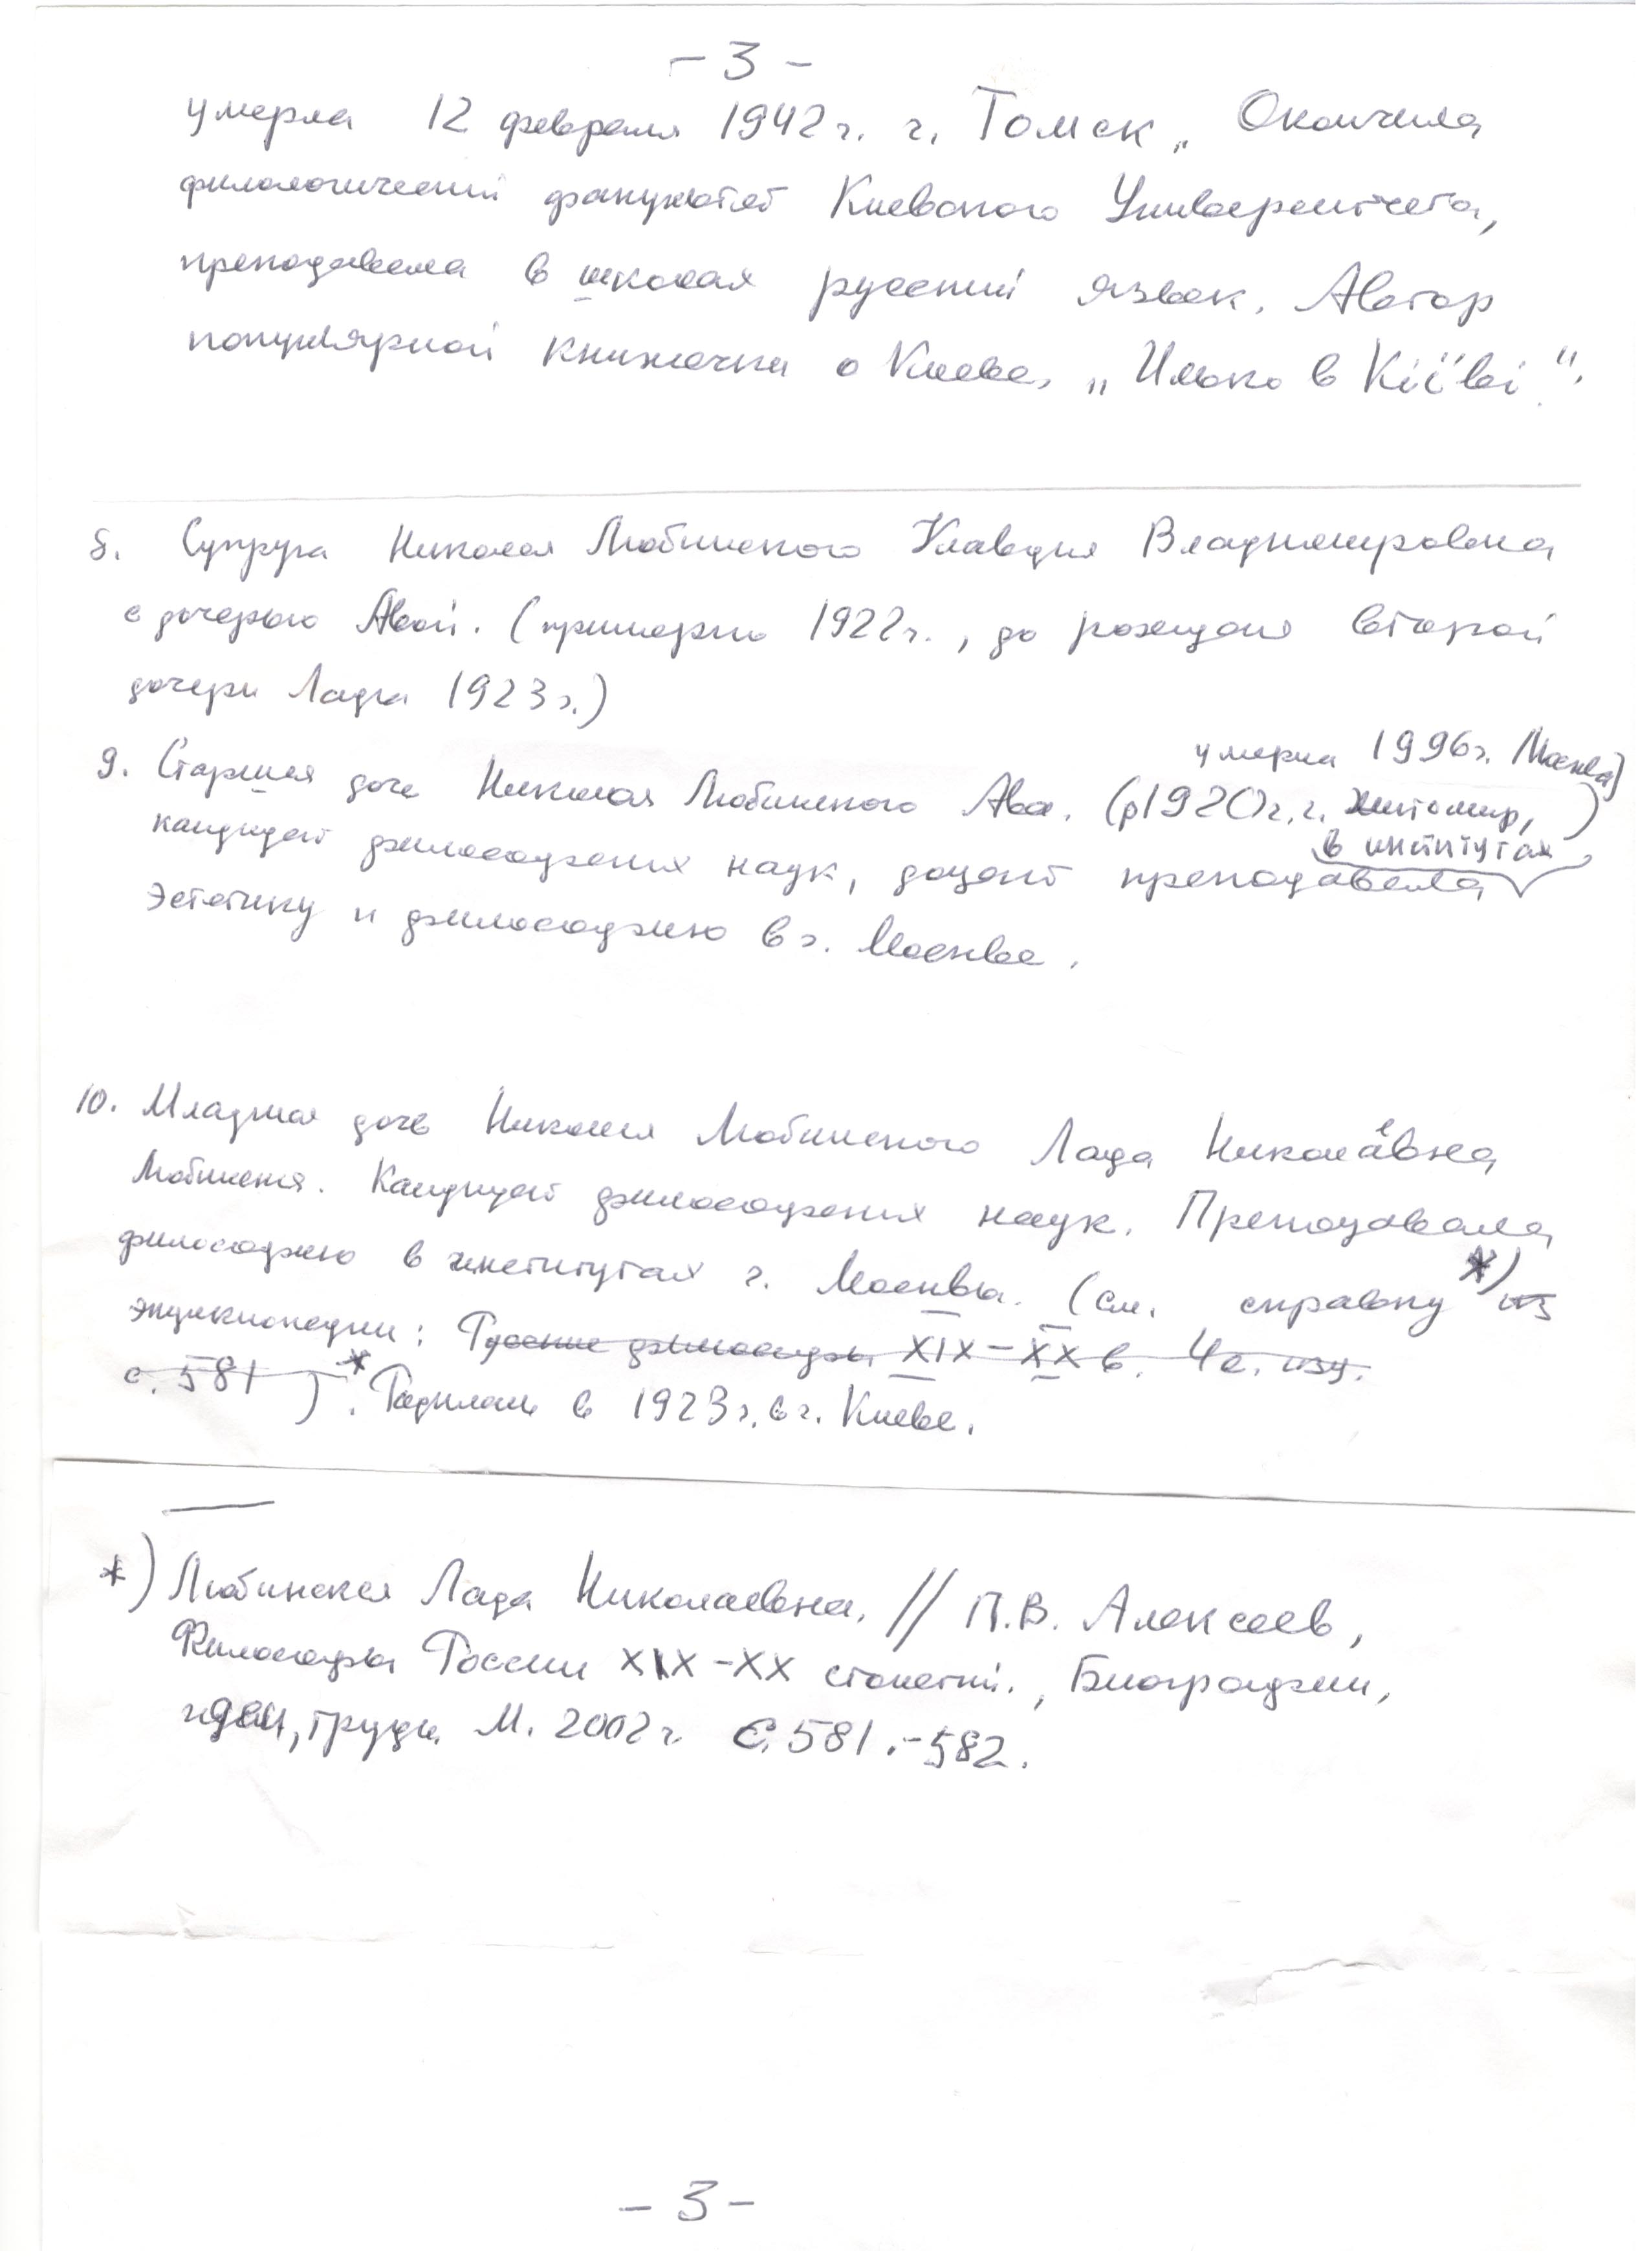 - 3 -
умерла 12 февраля 1942 г. г. Томск. Окончила
филологический факультет Киевского Университета,
преподавала в школах русский язык. Автор
популярной книжечки о Киеве, „Илько в Кіїві".
8. Супруга Николая Любинского Клавдия Владимировна
с дочерью Авой. (примерно 1922 г., до рождения второй
дочери Лады 1923 г.)
умерла 1996 г. Москва)
9. Старшая дочь Николая Любинского Ава. (р 1920 г. г. Житомир,)
в институтах
кандидат философских наук, доцент преподавала
эстетику и философию в г. Москве.
10. Младшая дочь Николая Любинского Лада Николаевна
Любинская. Кандидат философских наук. Преподавала
философию в институтах г. Москвы. (см. справку *) из
энциклопедии: Русские философы XIX - XX в. 4е. изд.
с. 581 ) *. Родилась в 1923 г. в г. Киеве.
*) Любинская Лада Николаевна. // П.В. Алексеев,
Философы России XIX - XX столетий., Биографии,
идеи, труды М. 2002 г. С. 581.-582.
- 3 -